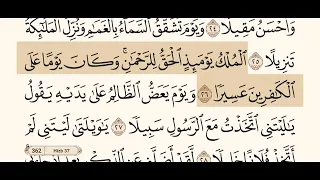 وَأَحْسَنُ مَقِيلًا ٢٤ وَيَوْمَ تَشَقَّقُ السَّمَاءُ بِالْغَمَامِ وَنُزِّلَ الْمَلَائِكَةُ
تَنزِيلًا ٢٥ الْمُلْكُ يَوْمَئِذٍ الْحَقُّ لِلرَّحْمَٰنِ وَكَانَ يَوْمًا عَلَى
الْكَافِرِينَ عَسِيرًا ٢٦ وَيَوْمَ يَعَضُّ الظَّالِمُ عَلَىٰ يَدَيْهِ يَقُولُ
يَا لَيْتَنِي اتَّخَذْتُ مَعَ الرَّسُولِ سَبِيلًا ٢٧ يَا وَيْلَتَىٰ لَيْتَنِي لَمْ
362 Hizb 37